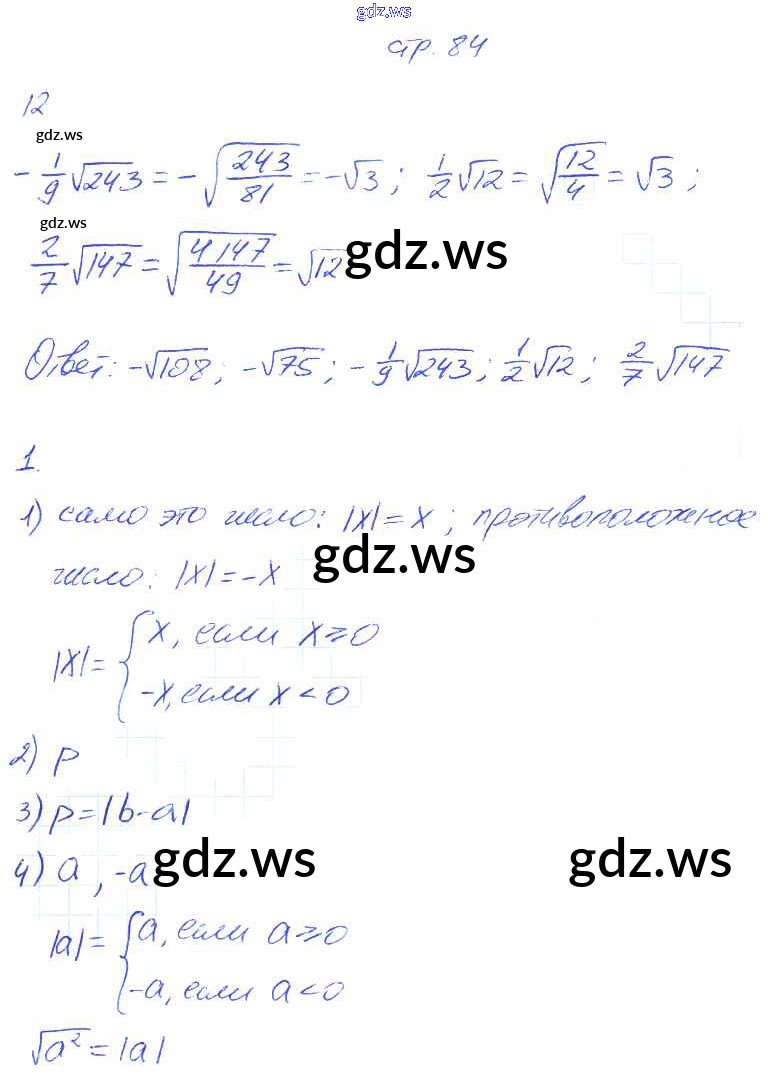 gdz.ws
стр. 84
12
gdz.ws
-1/9√243 = -√(243/81) = -√3; 1/2√12 = √(12/4) = √3;
gdz.ws
2/7√147 = √(4 147/49) = √12 gdz.ws
Ответ: -√108; -√75; -1/9√243; 1/2√12; 2/7√147
1.
1) само это число: |x| = x; противоположное
gdz.ws
число: |x| = -x
|x| = { x, если x ≥ 0
-x, если x < 0
2) p
3) p = |b-a|
4) a, -a gdz.ws gdz.ws
|a| = { a, если a ≥ 0
-a, если a < 0
√a² = |a|